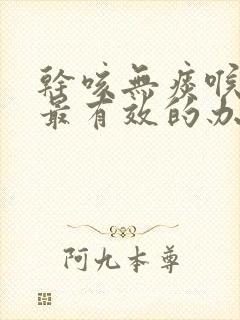 幹咳無痰喉
最有效的办
阿九本尊